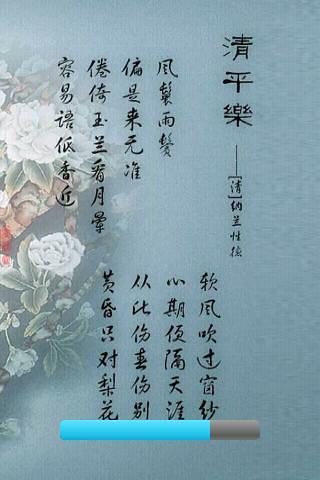 清平樂
——[清]纳兰性德
风鬟雨鬓
偏是来无准
倦倚玉兰看月晕
容易语低香近
软风吹过窗纱
心期便隔天涯
从此伤春伤别
黄昏只对梨花